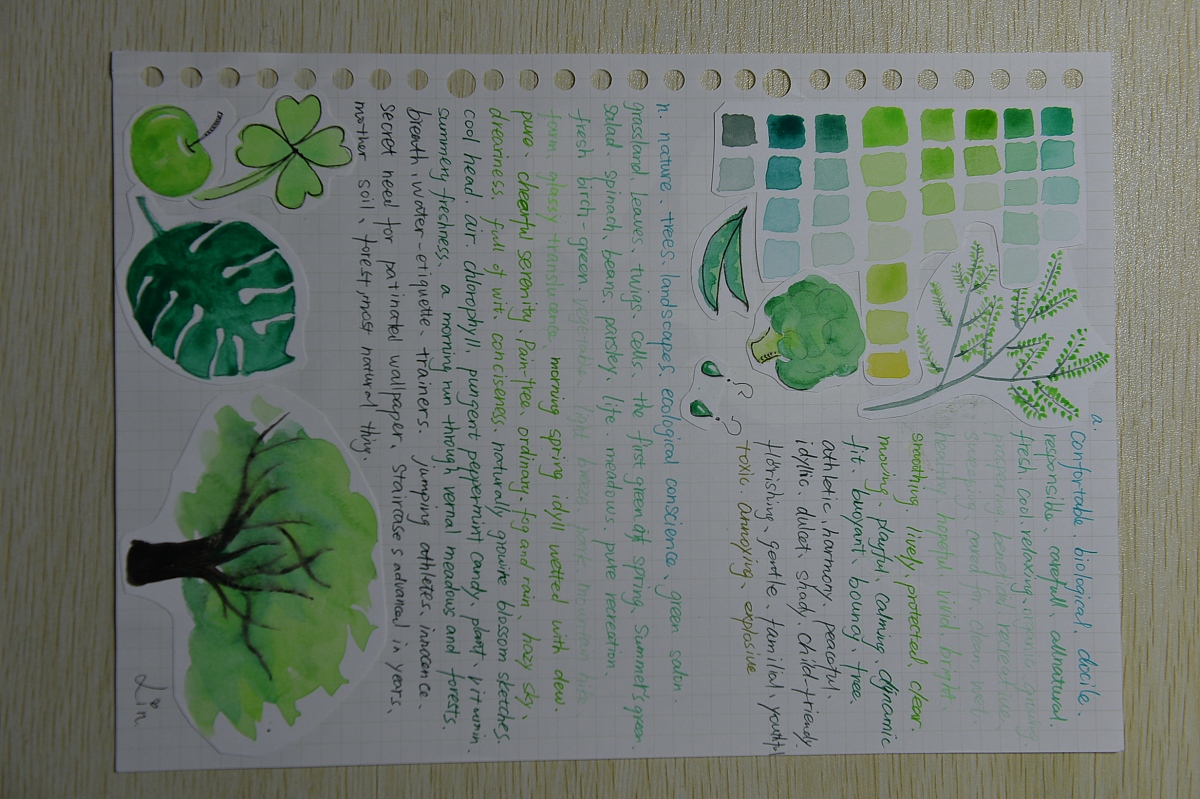 a.
comfortable. biological. docile.
responsible. carefull. allnatural.
fresh. cool. relaxing. organic. growing.
prospering. beneficial. recreative.
sweeping. cared for. clean. wet.
healthy. hopeful. vivid. bright.
soothing. lively. protected. clear.
moving. playful. calming. dynamic
fit. buoyant. bouncy. free.
athletic. harmony. peaceful.
idyllic. dulcet. shady. child-friendly.
flourishing. gentle. familial. youthful
toxic. annoying. explosive
n. nature. trees. landscapes. ecological conscience. green salon.
grassland. leaves. twigs. cells. the first green of spring. Summer's green.
Salad. spinach. beans. parsley. life. meadows. pure recreation.
fresh birch-green. vegetable. light breeze. park. mountain lake.
farm. glassy translucence. morning spring idyll wetted with dew.
pure. cheerful serenity. Palm tree. ordinary. fog and rain. hazy sky.
dreariness. full of wit. conciseness. naturally growing blossom sketches.
cool head. air. chlorophyll. pungent peppermint candy. plant. vitamin.
summery freshness. a morning run through vernal meadows and forests.
breath. water-etiquette. trainers. jumping athletes. innocence.
secret need for patinated wallpaper. Staircases advanced in years.
mother soil. forest. most natural thing.
Lin